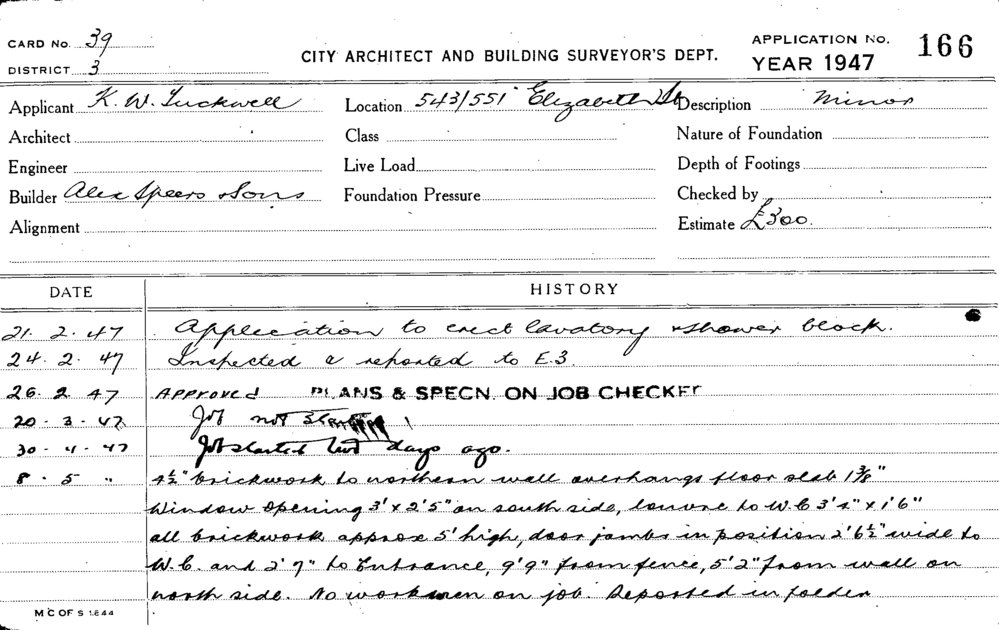 CARD No. 39
DISTRICT 3
CITY ARCHITECT AND BUILDING SURVEYOR'S DEPT.
APPLICATION No. 166
YEAR 1947
Applicant K. W. Tuckwell Location 543/551 Elizabeth St Description Minor
Architect Class Nature of Foundation
Engineer Live Load Depth of Footings
Builder Alex Speers & Sons Foundation Pressure Checked by
Alignment Estimate £300.
DATE HISTORY
21. 2. 47 Application to erect lavatory & shower block.
24. 2. 47 Inspected & reported to E.3
26. 2. 47 APPROVED PLANS & SPECN. ON JOB CHECKED
20. 3. 47 Job not started
30. 4. 47 Job started two days ago.
8. 5 " 4½" brickwork to northern wall overhangs floor slab 1⅜"
Window opening 3' x 2'5" on south side, louvre to W.C 3'4" x 1'6"
all brickwork approx 5' high, door jambs in position 2'6½" wide to
W.C. and 2'7" to Entrance, 9'9" from fence, 5'2" from wall on
north side. No workmen on job. Reported in folder
M C OF S 1844